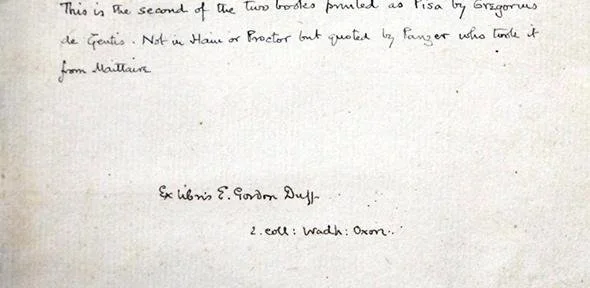 This is the second of the two books printed at Pisa by Gregorius
de Gentis. Not in Hain or Proctor but quoted by Panzer who took it
from Maittaire
Ex libris E. Gordon Duff.
e. coll: Wadh: Oxon.